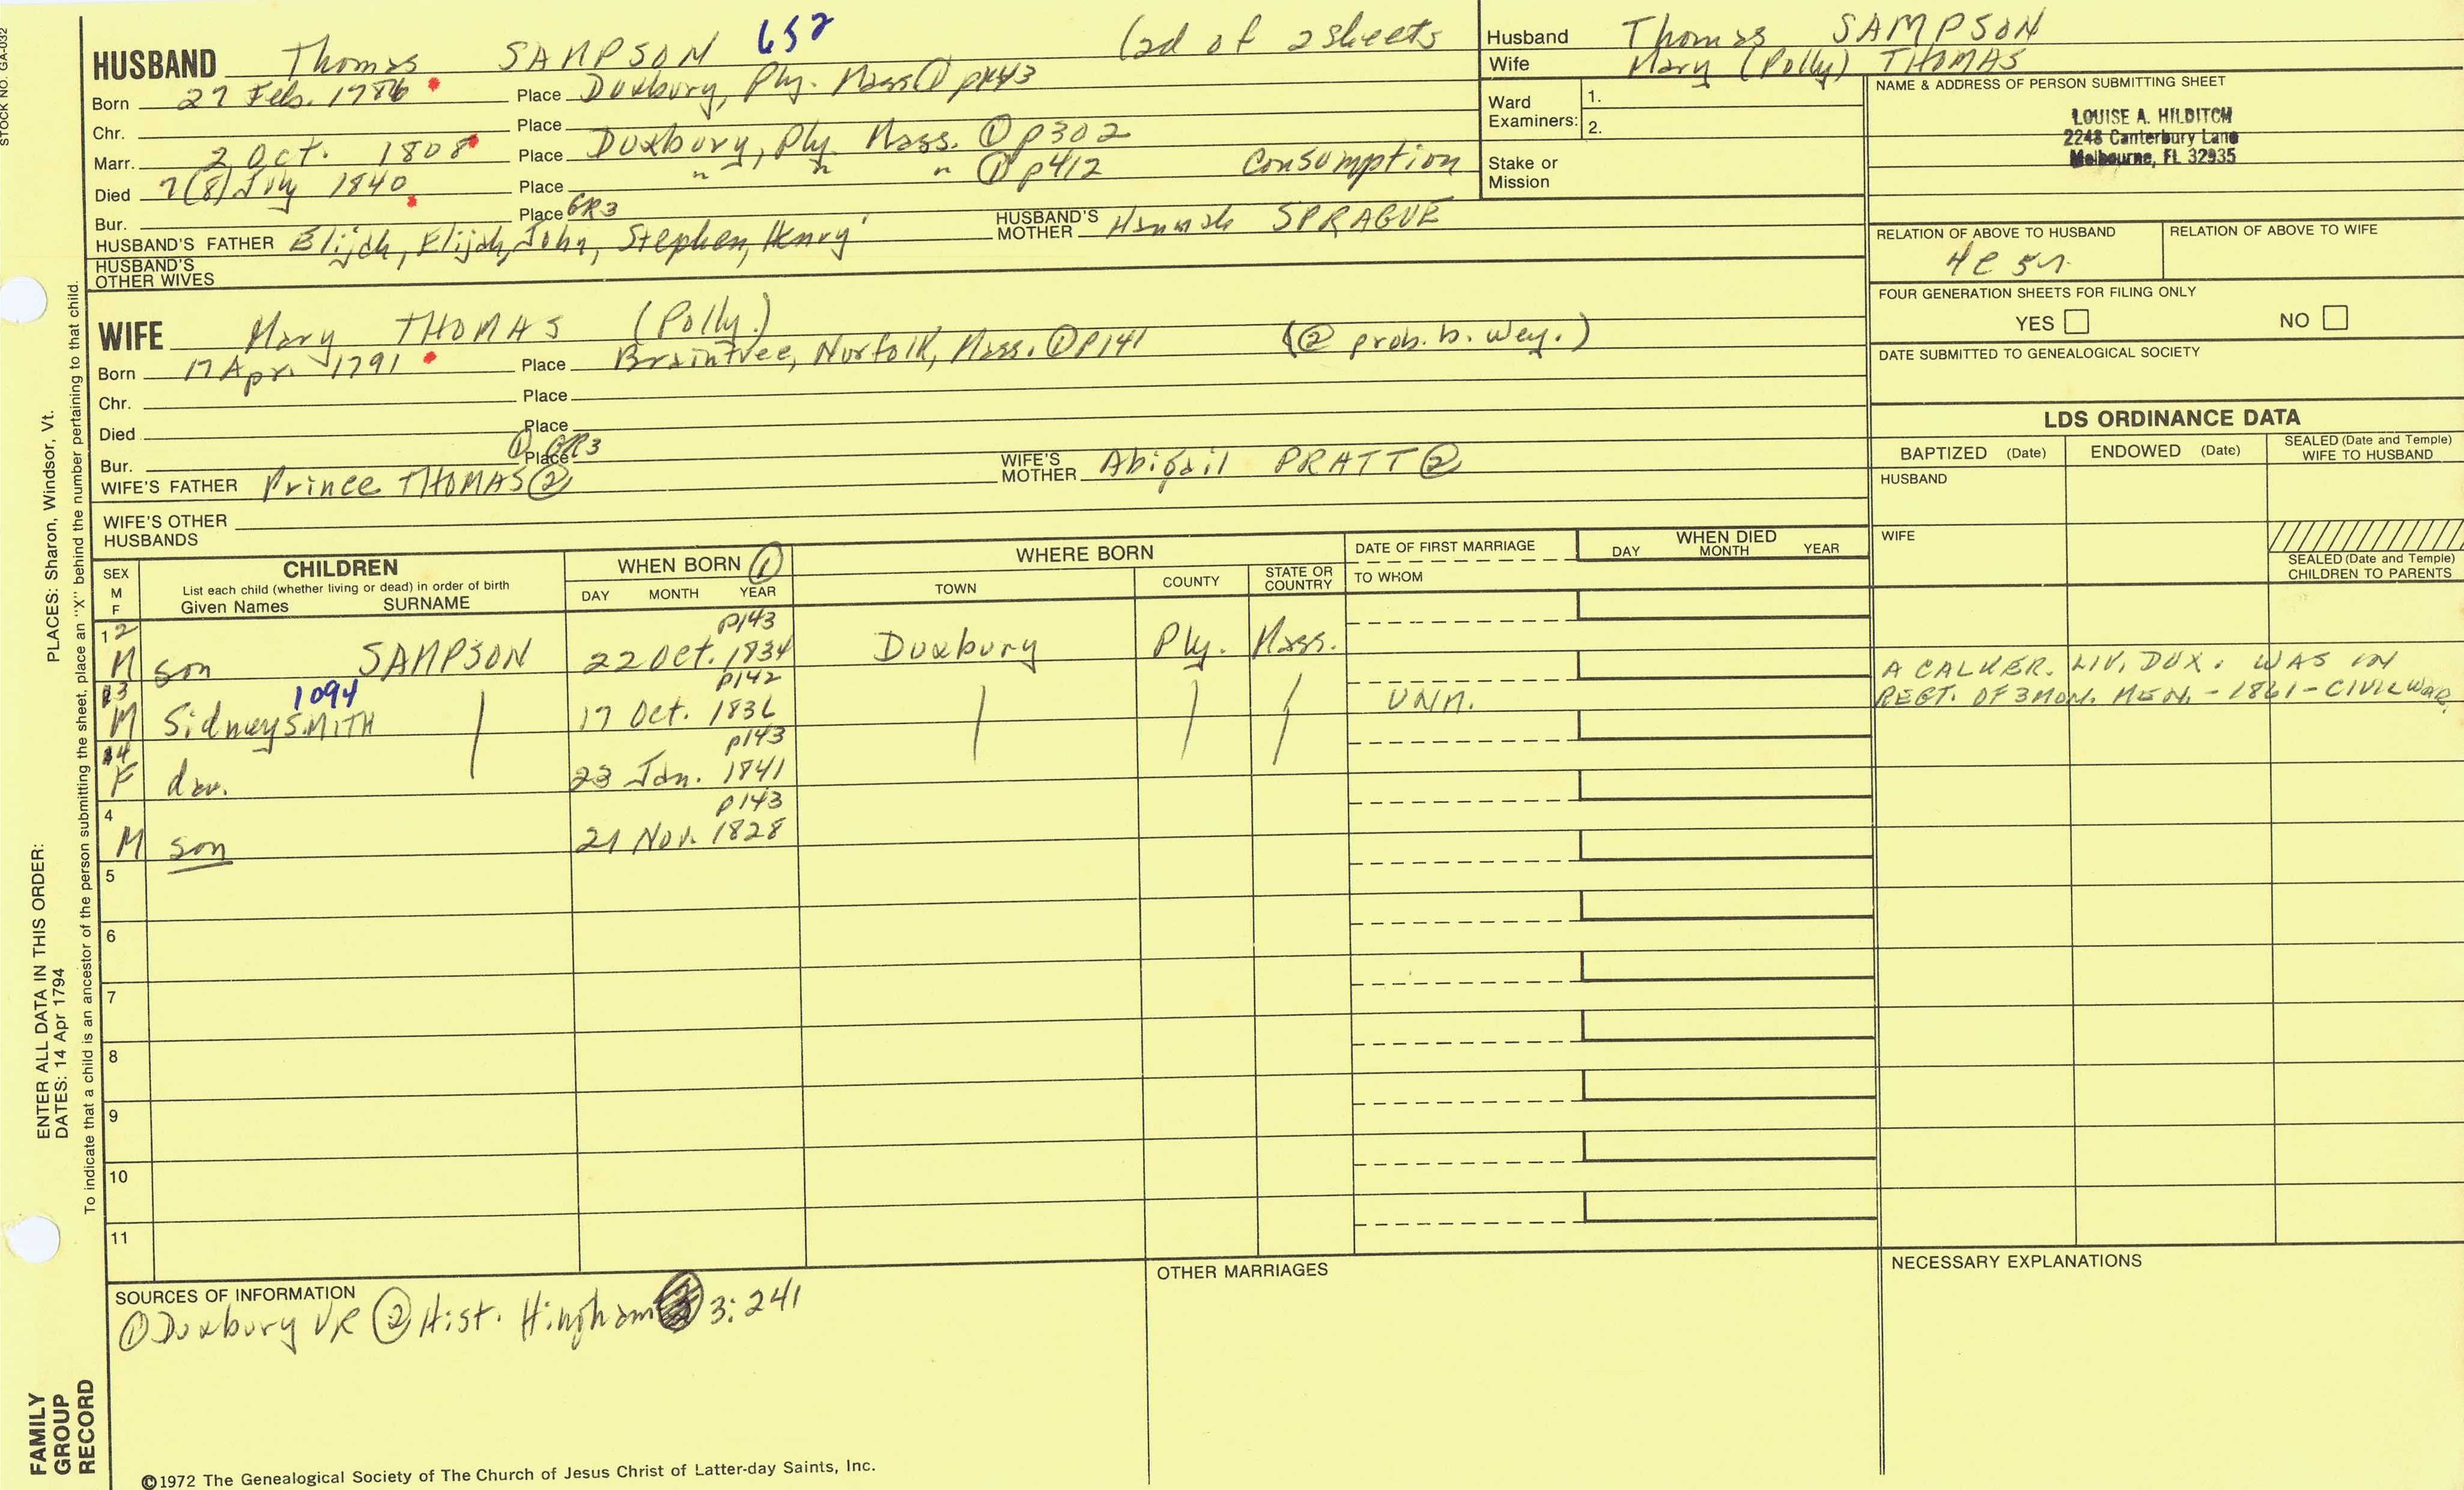 STOCK NO. GA-032
HUSBAND Thomas SAMPSON 652 (2d of 2 sheets
Born 27 Feb. 1786 Place Duxbury, Ply. Mass ① p143
Chr. Place
Marr. 2 Oct. 1808 Place Duxbury, Ply. Mass. ① p302
Died 7(8) July 1840 Place " " " ① p412 Consumption
Bur. Place GR3
HUSBAND'S FATHER Elijah, Elijah, John, Stephen, Henry HUSBAND'S MOTHER Hannah SPRAGUE
HUSBAND'S OTHER WIVES
WIFE Mary THOMAS (Polly)
Born 17 Apr. 1791 Place Braintree, Norfolk, Mass. ① p141 (② prob. b. Wey.)
Chr. Place
Died Place
Bur. Place ① GR3
WIFE'S FATHER Prince THOMAS ② WIFE'S MOTHER Abigail PRATT ②
WIFE'S OTHER HUSBANDS
Husband Thomas SAMPSON
Wife Mary (Polly) THOMAS
Ward Examiners: 1. 2.
Stake or Mission
NAME & ADDRESS OF PERSON SUBMITTING SHEET
LOUISE A. HILDITCH
2248 Canterbury Lane
Melbourne, FL 32935
RELATION OF ABOVE TO HUSBAND RELATION OF ABOVE TO WIFE
4c 5r
FOUR GENERATION SHEETS FOR FILING ONLY
YES NO
DATE SUBMITTED TO GENEALOGICAL SOCIETY
LDS ORDINANCE DATA
BAPTIZED (Date) ENDOWED (Date) SEALED (Date and Temple) WIFE TO HUSBAND
HUSBAND
WIFE
SEALED (Date and Temple) CHILDREN TO PARENTS
SEX M F CHILDREN WHEN BORN ① WHERE BORN DATE OF FIRST MARRIAGE WHEN DIED
List each child (whether living or dead) in order of birth
Given Names SURNAME DAY MONTH YEAR TOWN COUNTY STATE OR COUNTRY TO WHOM DAY MONTH YEAR
12 p143
M son SAMPSON 22 Oct. 1834 Duxbury Ply. Mass.
13 1094 p142
M Sidney SMITH 17 Oct. 1836 UNM. A CALKER. LIV. DUX. WAS IN
REGT. OF 3 MON. MEN. - 1861 - CIVIL WAR.
14 p143
F dau. 23 Jan. 1841
4 p143
M son 21 Nov. 1828
5
6
7
8
9
10
11
SOURCES OF INFORMATION
① Duxbury VR ② Hist. Hingham 3:241
OTHER MARRIAGES
NECESSARY EXPLANATIONS
©1972 The Genealogical Society of The Church of Jesus Christ of Latter-day Saints, Inc.
FAMILY GROUP RECORD
ENTER ALL DATA IN THIS ORDER:
DATES: 14 Apr 1794
PLACES: Sharon, Windsor, Vt.
To indicate that a child is an ancestor of the person submitting the sheet, place an "X" behind the number pertaining to that child.